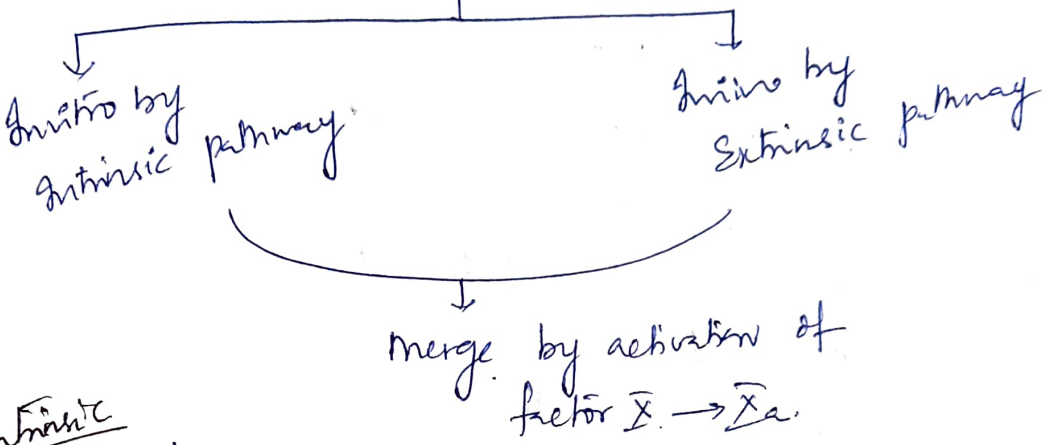 Invitro by
Intrinsic pathway
Invivo by
Extrinsic pathway
merge by activation of
factor X → Xa.